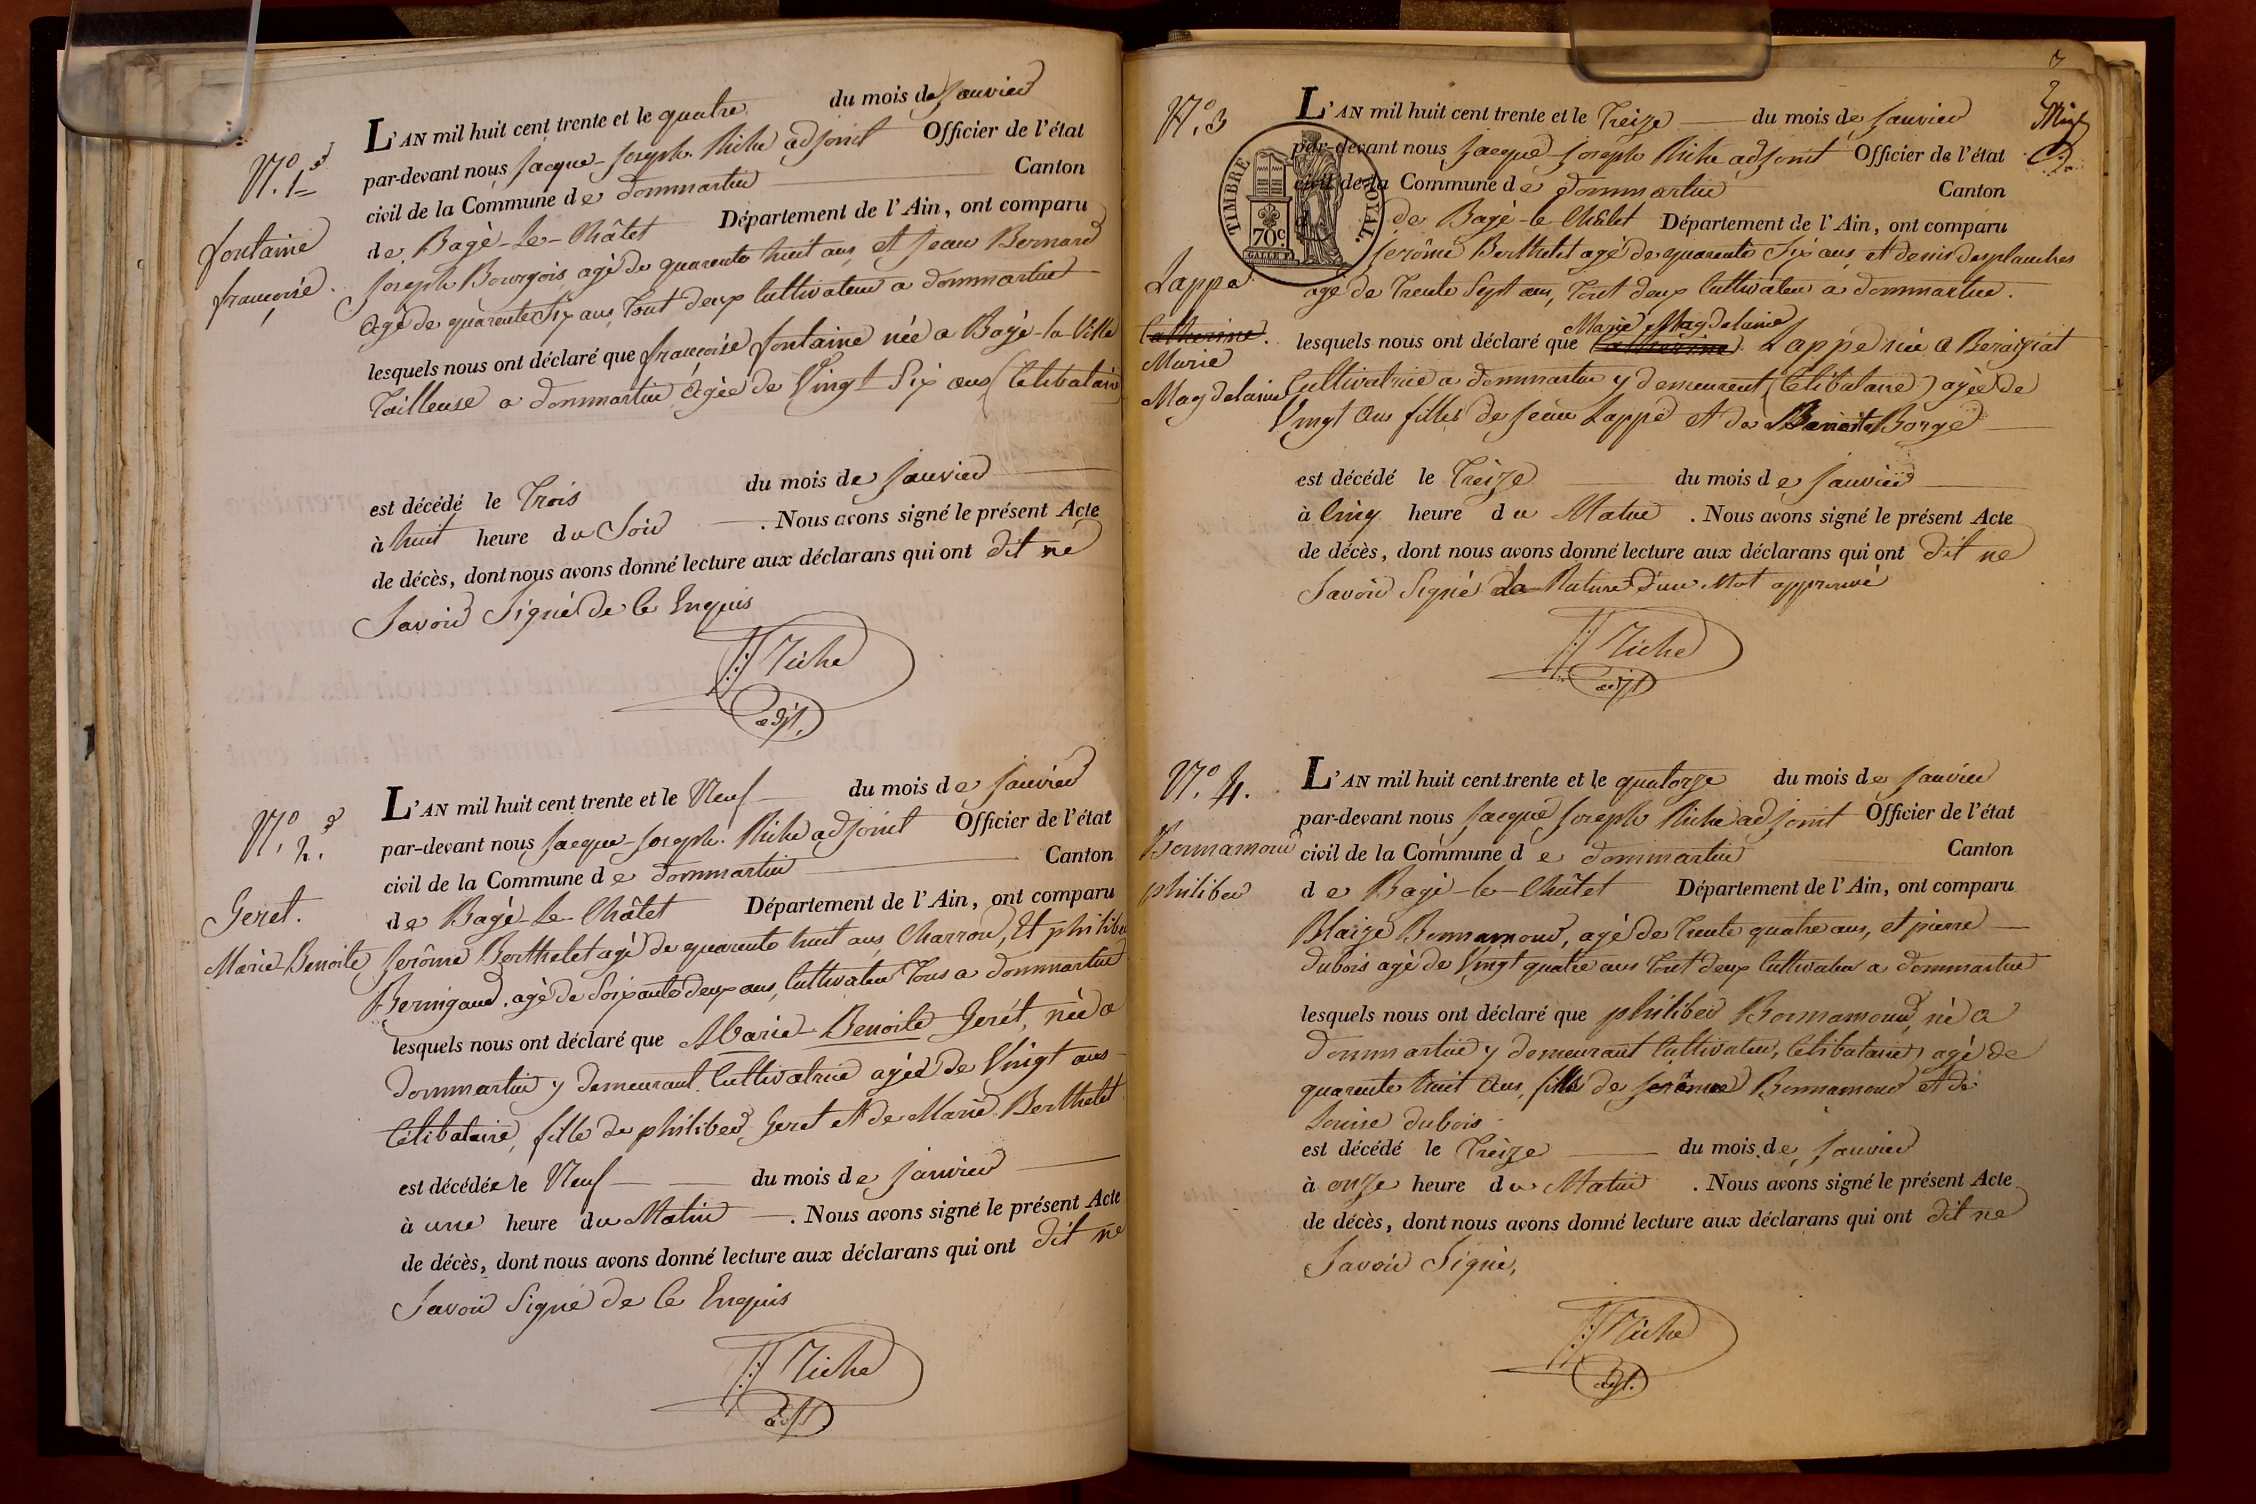 N.º 1er
fontaine
françoise.
L'AN mil huit cent trente et le quatre du mois de janvier
par-devant nous jacque-joseph. Riche adjoint Officier de l'état
civil de la Commune de dommartin Canton
de Bagé-Le-Châtet Département de l'Ain, ont comparu
joseph Bourgois agé de quarente huit ans, et jean Bernard
agé de quarente Six ans, Tout deux Cultivateur a dommartin
lesquels nous ont déclaré que françoise fontaine née a Bagé-la-Ville
Tailleuse a dommartin Agée de Vingt Six ans (Célibataire)
est décédé le Trois du mois de janvier
à huit heure du Soir . Nous avons signé le présent Acte
de décès, dont nous avons donné lecture aux déclarans qui ont dit ne
Savoir Signé de ce Enquis
Riche
adjt.
N.º 2.
Geret.
Marie-Benoite
L'AN mil huit cent trente et le Neuf du mois de janvier
par-devant nous jacque-joseph. Riche adjoint Officier de l'état
civil de la Commune de dommartin Canton
de Bagé-Le-Châtet Département de l'Ain, ont comparu
jerôme Berthelet agé de quarente huit ans, Charron, Et philiber
Bernigaud. agé de Soixante deux ans, Cultivateur Tous a dommartin
lesquels nous ont déclaré que Marie Benoite Gerét, née a
dommartin y demeurant. Cultivatrice agée de Vingt ans
Célibataire, fille de philiber Geret et de Marie Berthelet
est décédée le Neuf du mois de janvier
à une heure du Matin . Nous avons signé le présent Acte
de décès, dont nous avons donné lecture aux déclarans qui ont dit ne
Savoir Signé de ce Enquis
Riche
adjt
3
N.º 3
TIMBRE ROYAL.
70c
Lappe
Catherine.
Marie
Magdelaine
L'AN mil huit cent trente et le Treize du mois de janvier
par-devant nous jacque-joseph Riche adjoint Officier de l'état
civil de la Commune de dommartin Canton
de Bagé-le-Châlet Département de l'Ain, ont comparu
jerôme Berthelet agé de quarente Six ans, et denis desplanches
agé de Trente Sept ans, Tout deux Cultivateur a dommartin.
Marie Magdelaine
lesquels nous ont déclaré que Catherine Lappe née a Beraiziat
Cultivatrice a dommartin y demeurent (Célibataire) agée de
Vingt Ans filles de jean Lappe et de Benoite Borge
est décédé le Treize du mois de janvier
à Cinq heure du Matin . Nous avons signé le présent Acte
de décès, dont nous avons donné lecture aux déclarans qui ont dit ne
Savoir Signé La Rature d'un Mot approuvé
Riche
adjt
N.º 4.
Bonnamour
philiber
L'AN mil huit cent trente et le quatorze du mois de janvier
par-devant nous jacque joseph Riche adjoint Officier de l'état
civil de la Commune de dommartin Canton
de Bagé-le-Châtet Département de l'Ain, ont comparu
Blaize Bonnamour, agé de Trente quatre ans, et pierre
dubois agé de Vingt quatre ans Tout deux Cultivateur a dommartin
lesquels nous ont déclaré que philiber Bonnamour, né a
dommartin y demeurant Cultivateur, Célibataire, agé de
quarente huit Ans, fils de jerôme Bonnamour et de
Louise dubois
est décédé le Treize du mois de janvier
à onze heure du Matin . Nous avons signé le présent Acte
de décès, dont nous avons donné lecture aux déclarans qui ont dit ne
Savoir Signé,
Riche
adjt.